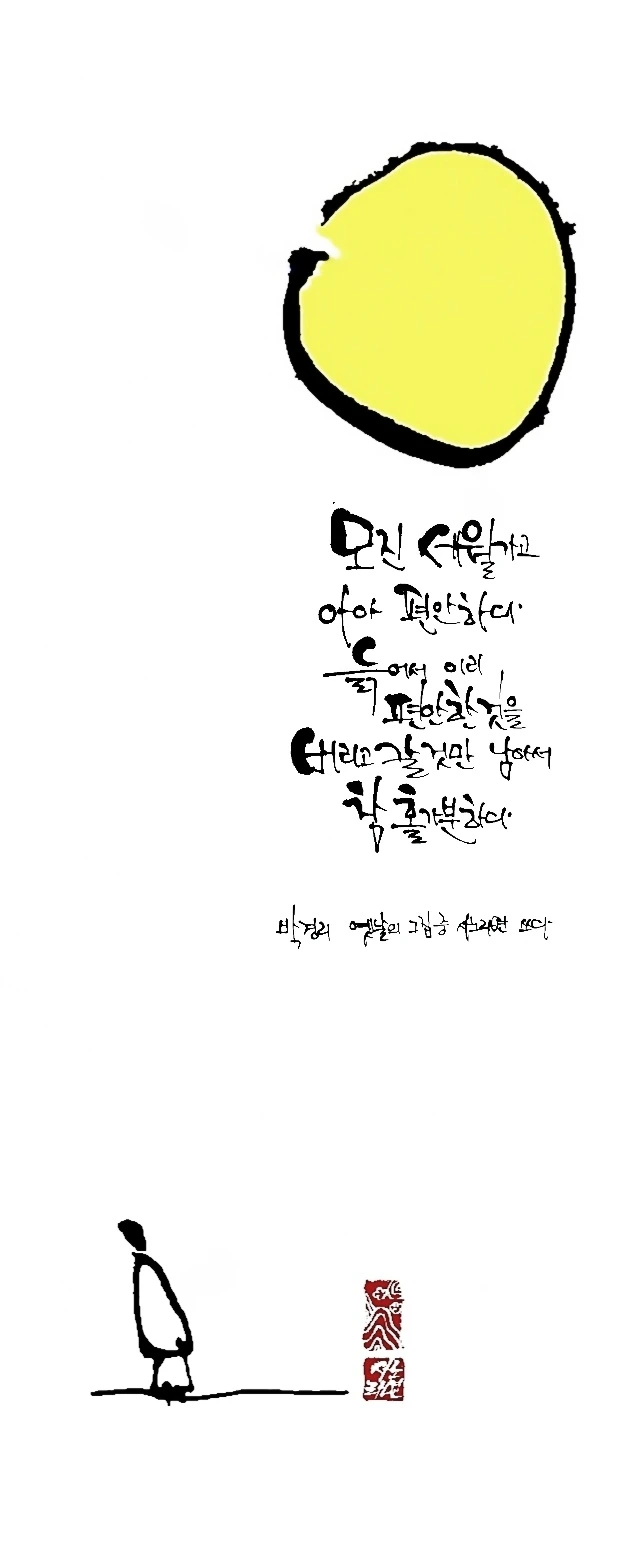 모진 세월가고
아아 편안하다.
늙어서 이리
편안한것을
버리고 갈 것만 남아서
참 홀가분하다.
박경리 옛날의 그집 중 쓰다